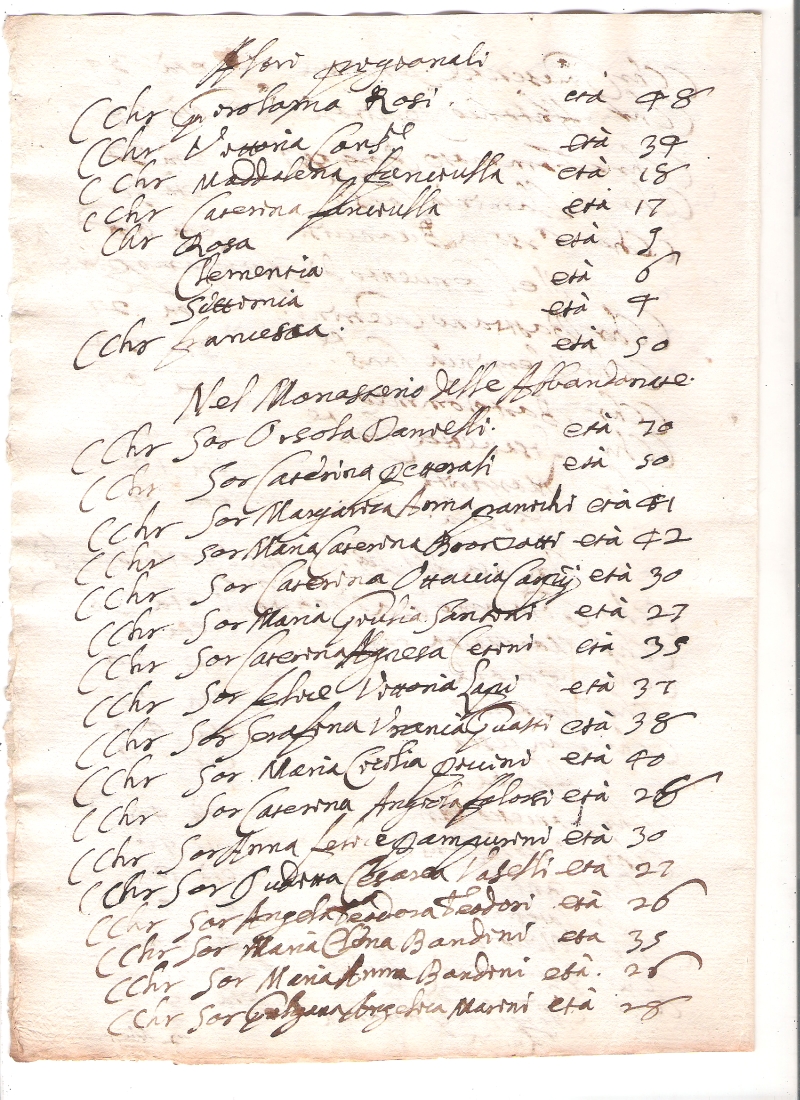 Altri pigionali
CChr Girolama Rosi. età 48
CChr Vittoria Cons.te età 34
CChr Maddalena fanciulla età 18
CChr Caterina fanciulla età 17
Chr Rosa età 9
Clementia età 6
Settimia età 4
CChr francesca. età 50
Nel Monasterio delle Abbandonate.
CChr Sor Orsola Danielli. età 70
CChr Sor Caterina Pettorali età 50
CChr Sor Margarita Anna età 41
CChr Sor Maria Caterina età 42
CChr Sor Caterina Ottavia età 30
CChr Sor Maria Giulia Santini età 27
CChr Sor Caterina Agnesa Cerini età 35
CChr Sor felice Vittoria Lapi età 37
CChr Sor Serafina Urania età 38
CChr Sor Maria Cecilia età 40
CChr Sor Caterina Angiola falossi età 26
CChr Sor Anna felice Pampurini età 30
CChr Sor Giuditta Cesarea Vaselli eta 27
CChr Sor Angela Teodora Teodori età 26
CChr Sor Maria Bandini eta 35
CChr Sor Maria Anna Bandini età. 26
CChr Sor Angelica Marini età 28